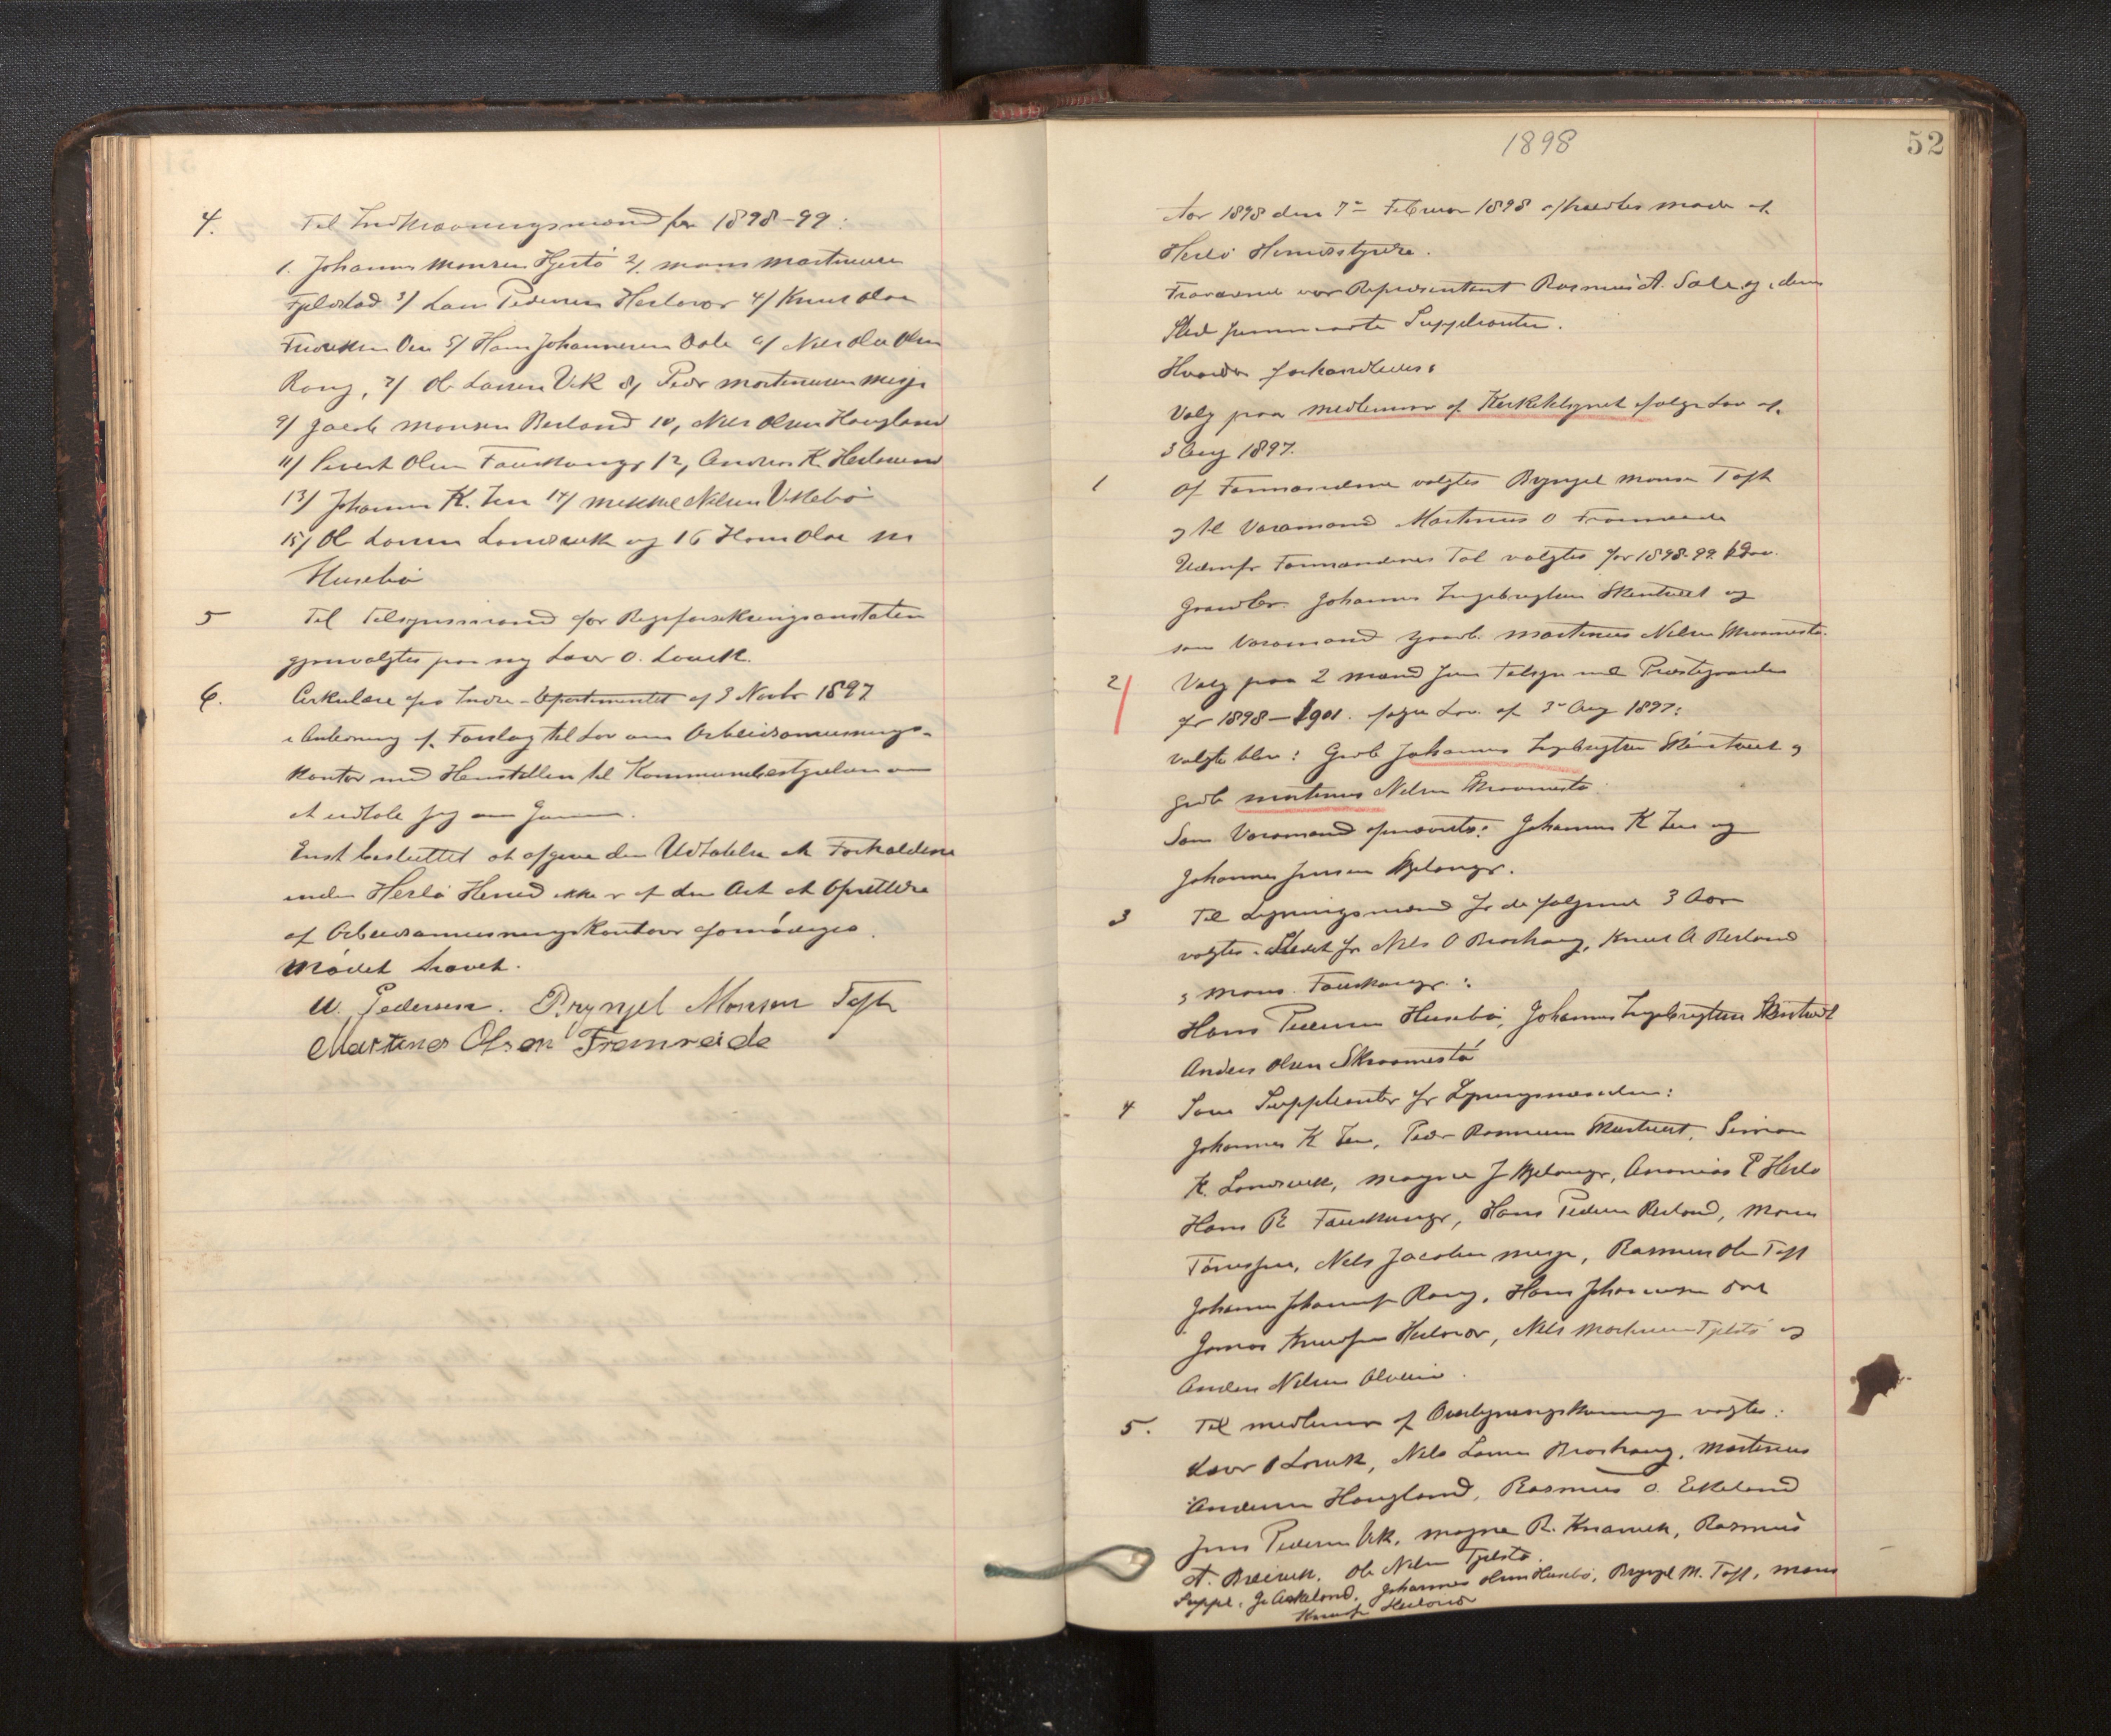 4. Til Indkrævningsmænd for 1898-99:
1. Johannes Monsen Hjertø 2/ Mons Martinusen
Fjeldstad 3/ Lars Pedersen Herløvær 4/ Knut Olsen
5/ Hans Johannesen Dale 6/ Nils Ole Olsen
Rong, 7/ Ole Larsen Vik 8/ Peder Mortensen Misje
9/ Jacob Monsen Berland 10, Nils Olsen Haugland
11/ Sivert Olsen Fauskanger 12, Andreas K. Herlø
13/ Johannes K. Zen 14/ Mikkel Nilsen Vikebø
15/ Ole Larsen Landsvik og 16 Hans Olsen
Husebø
5 Til Tilsynsmand for Rigsforsikringsanstalten
gjenvalgtes paa ny Laur O. Louvik.
6. Cirkulære fra Indre-Departementet af 3 Novbr 1897
i Anledning af Forslag til Lov om Arbeidsanvisnings-
kontor med Henstillen til Kommunebestyrelsen om
at udtale sig om samme.
Enst besluttet at afgive den Udtalelse at Forholdene
inden Herlø Herred ikke er af den Art at Oprettelse
af Arbeidsanvisningskontorer formødiges.
Mødet hævet.
W. Pedersen. Bryngel Monsen Toft
Martines Olsen Fromreide
1898
52
Aar 1898 den 7de Februar 1898 afholdtes møde af
Herlø Herredsstyre.
Fraværende var Repræsentant Rasmus A. Sole og i dens
Sted fremmødte Suppleanten.
Hvorda forhandledes:
Valg paa medlemmer af Kirketilsynet ifølge Lov af
3 Aug 1897.
1 Af Formændene valgtes Bryngel Monsen Toft
og til Varamand Martinus O Fromreide
Udenfor Formændenes Tal valgtes for 1898-99
Gaardbr. Johannes Ingebrigtsen Skintveit og
som Varamand gaardb. Martinus Nilsen Skraamestø.
2/ Valg paa 2 mænd som Tilsyn med Præstegaarden
for 1898-1901. ifølge Lov. af 3 Aug 1897:
valgte blev: Grdb Johannes Ingebrigtsen Skintveit og
grdb Martinus Nilsen Skraamestø.
Som Varamænd opnævntes: Johannes K Zen og
Johannes Jensen Bjelanger.
3 Til Ligningsmænd for de følgende 3 Aar
valgtes i Stedet for Nils O Broshaug, Knut A Berland
og Mons Fauskanger:
Hans Pedersen Husebø, Johannes Ingebrigtsen Skintveit
Anders Olsen Skraamestø
4 Som Suppleanter for Ligningsmændene:
Johannes K Zen, Peder Rasmusen Skintveit, Simon
K. Landsvik, Magne J Bjelanger, Ananias P Herlø
Hans R Fauskanger, Hans Pedersen Berland, Mons
Tønnesen, Nils Jacobsen Misje, Rasmus Ole Toft
Johannes Johannesen Rong, Hans Johannesen Dale
Jonas Knudsen Herløvær, Nils Martinusen Fjelstø og
Anders Nilsen Alvheim.
5. Til medlemmer af Overligningskommission valgtes:
Laur O Louvik, Nils Larsen Broshaug, Martinus
Andersen Haugland, Rasmus O. Eikeland
Jens Pedersen Vik, Magne R. Knarvik, Rasmus
A. Breivik, Ole Nilsen Fjelstø.
Suppl: G. Askeland, Johannes Olsen Husebø, Bryngel M. Toft, Mons
Knudsen Herløvær